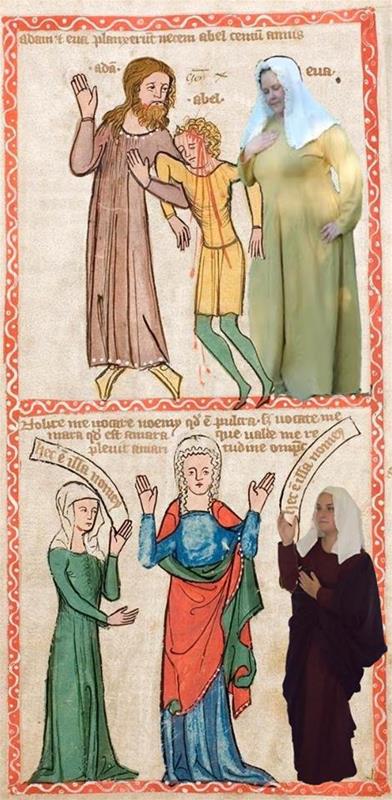 adam & eua planxerūt necem abel centū annis
·adā·
eua·
·abel·
Nolite me uocare noemy qd ē pulcra· s; uocate me
mara qd est amara que ualde me re
pleuit amari tudine
hec ē illa nomey
hec ē illa nomey